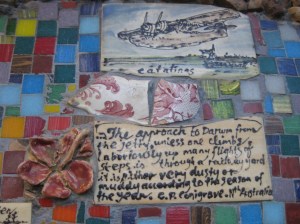 catalinas
...The approach to Darwin from
the jetty, unless one climbs
laboriously up many flights of
steps, is through a railway yard
it is either very dusty or
muddy according to the season of
the year. C.P. Conigrave. Nth Australia